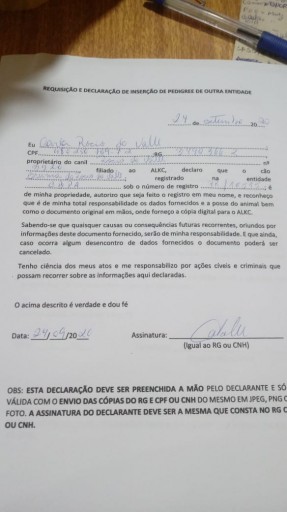 REQUISIÇÃO E DECLARAÇÃO DE INSERÇÃO DE PEDIGREE DE OUTRA ENTIDADE
24 de setembro 20
Eu Rocio do Valle
CPF RG
proprietário do canil nº
filiado ao ALKC, declaro que o cão
registrado na entidade
sob o número de registro é
de minha propriedade, autorizo que seja feito o registro em meu nome, e reconheço
que é de minha total responsabilidade os dados fornecidos e a posse do animal bem
como o documento original em mãos, onde forneço a cópia digital para o ALKC.
Sabendo-se que quaisquer causas ou consequências futuras recorrentes, oriundos por
informações deste documento fornecido, serão de minha responsabilidade. E que ainda,
caso ocorra algum desencontro de dados fornecidos o documento poderá ser
cancelado.
Tenho ciência dos meus atos e me responsabilizo por ações cíveis e criminais que
possam recorrer sobre as informações aqui declaradas.
O acima descrito é verdade e dou fé
Data: 24/09/2020 Assinatura:
(Igual ao RG ou CNH)
OBS: ESTA DECLARAÇÃO DEVE SER PREENCHIDA A MÃO PELO DECLARANTE E SÓ
VÁLIDA COM O ENVIO DAS CÓPIAS DO RG E CPF OU CNH DO MESMO EM JPEG, PNG
FOTO. A ASSINATURA DO DECLARANTE DEVE SER A MESMA QUE CONSTA NO RG
OU CNH.